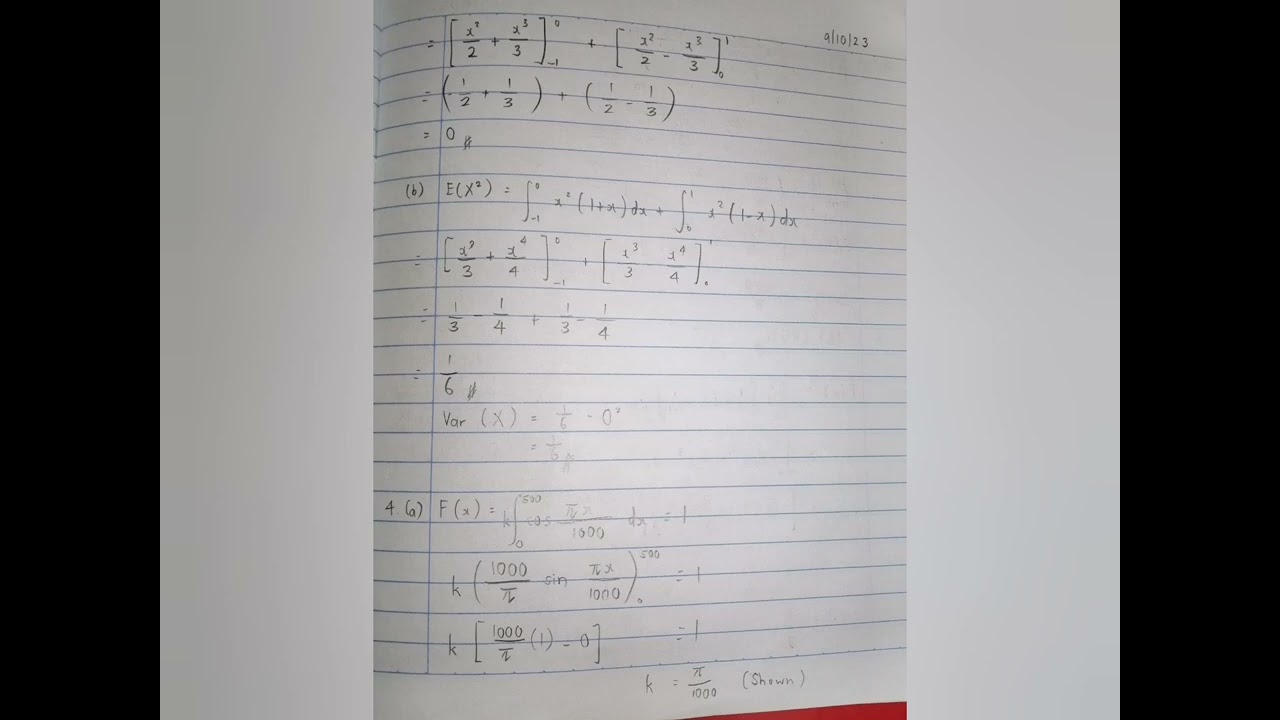 9/10/23
= [x²/2 + x³/3]₋₁⁰ + [x²/2 - x³/3]₀¹
= (-1/2 + 1/3) + (1/2 - 1/3)
= 0
(b) E(X²) = ∫₋₁⁰ x²(1+x)dx + ∫₀¹ x²(1-x)dx
= [x³/3 + x⁴/4]₋₁⁰ + [x³/3 x⁴/4]₀¹
= 1/3 - 1/4 + 1/3 - 1/4
= 1/6
Var (X) = 1/6 - 0²
= 1/6
4.(a) F(x) = k∫₀⁵⁰⁰ cos πx/1000 dx = 1
k (1000/π sin πx/1000)₀⁵⁰⁰ = 1
k [1000/π (1) - 0] = 1
k = π/1000 (Shown)